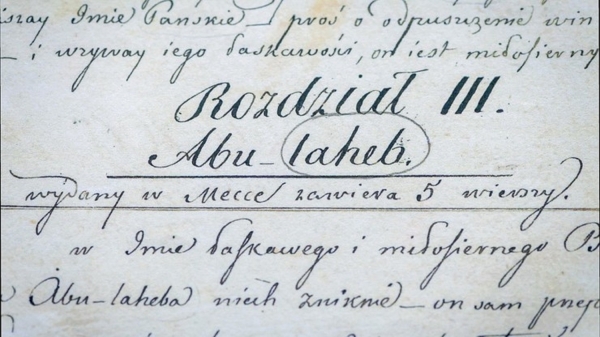 Imie Pańskie – proś o odpuszczenie win
– i wzyway iego łaskawości, on iest miłosierny
Rozdział III.
Abu-laheb.
wydany w Mecce zawiera 5 wierszy.
w Imie łaskawego i miłosiernego B
Abu-laheba niech zniknie – on sam przep